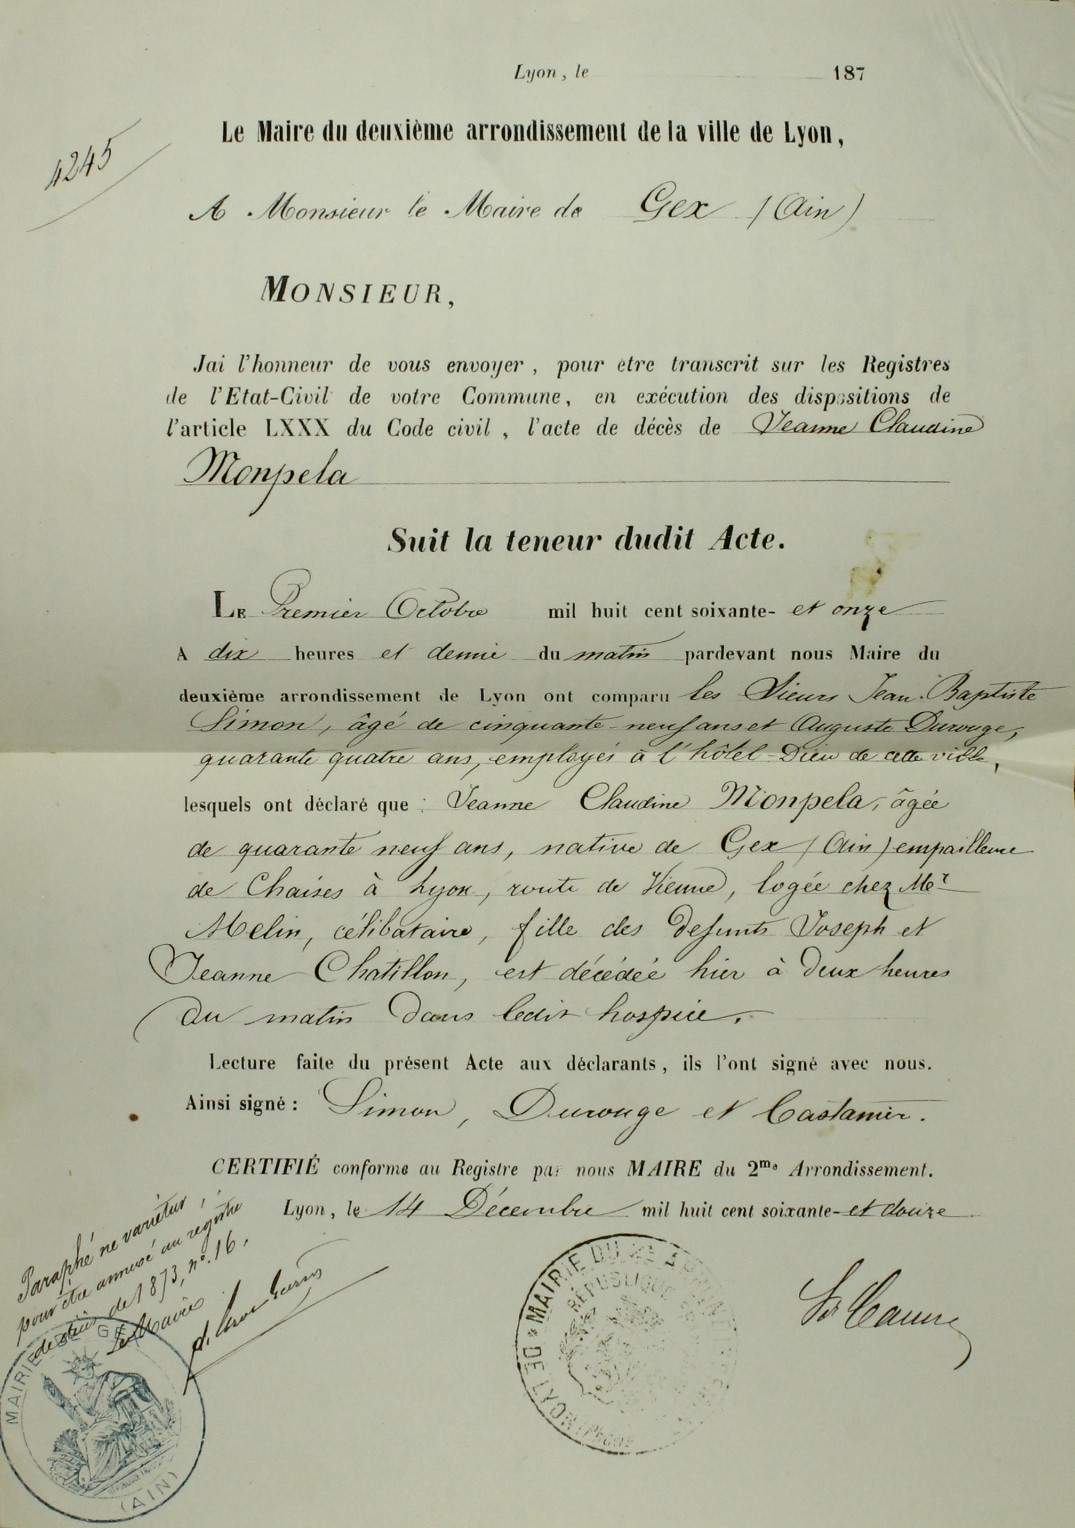 Lyon, le 187
Le Maire du deuxième arrondissement de la ville de Lyon,
4245
A Monsieur le Maire de Gex (Ain)
MONSIEUR,
Jai l'honneur de vous envoyer, pour être transcrit sur les Registres
de l'Etat-Civil de votre Commune, en exécution des dispositions de
l'article LXXX du Code civil, l'acte de décès de Jeanne Claudine
Monpela
Suit la teneur dudit Acte.
LE Premier Octobre mil huit cent soixante- et onze
A dix heures et demie du matin pardevant nous Maire du
deuxième arrondissement de Lyon ont comparu les Sieurs Jean-Baptiste
Simon, âgé de cinquante-neuf ans et Auguste Durouge,
quarante quatre ans, employés à l'hôtel-Dieu de cette ville,
lesquels ont déclaré que : Jeanne Claudine Monpela, âgée
de quarante neuf ans, native de Gex (Ain) empailleuse
de Chaises à Lyon, route de Vienne, logée chez Mr
Melin, célibataire, fille des defunts Joseph et
Jeanne Chatillon, est décédée hier à deux heures
du matin dans ledit hospice.
Lecture faite du présent Acte aux déclarants, ils l'ont signé avec nous.
Ainsi signé : Simon, Durouge et Castanier.
CERTIFIÉ conforme au Registre par nous MAIRE du 2me Arrondissement.
Lyon, le 14 Décembre mil huit cent soixante- et douze
Paraphé ne varietur
pour être annexé au registre
de décès de 1873, no. 16.
Le Maire
MAIRIE DE GEX
(AIN)
MAIRIE DU
RÉPUBLIQUE
DE LYON (RHONE)